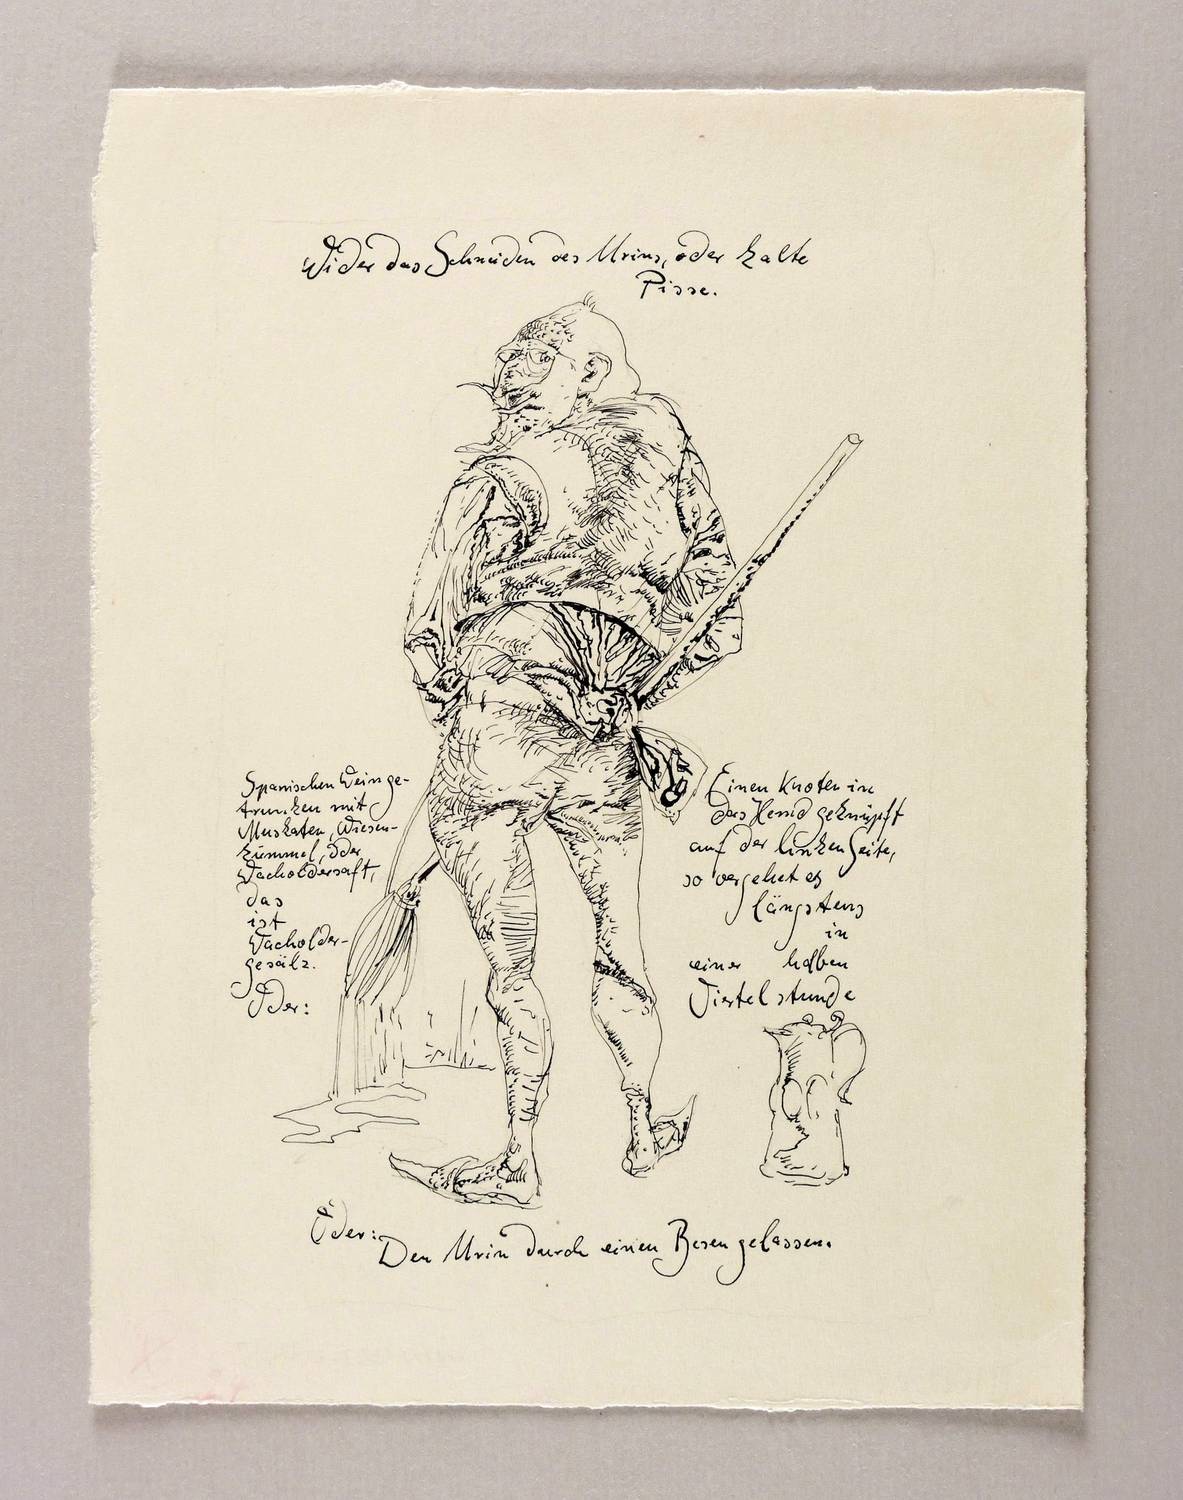 Wider das Schneiden des Urins, oder kalte
Pisse.
Spanischen Wein ge-
trunken mit
Muskaten, Wiesen-
kümmel, oder
Wacholdersaft,
das
ist
Wacholder-
gesälz.
Oder:
Einen Knoten in
das Hemd geknüpft
auf der linken Seite,
so vergehet es
längstens
in
einer halben
Viertelstunde
Oder:
Den Urin durch einen Besen gelassen.